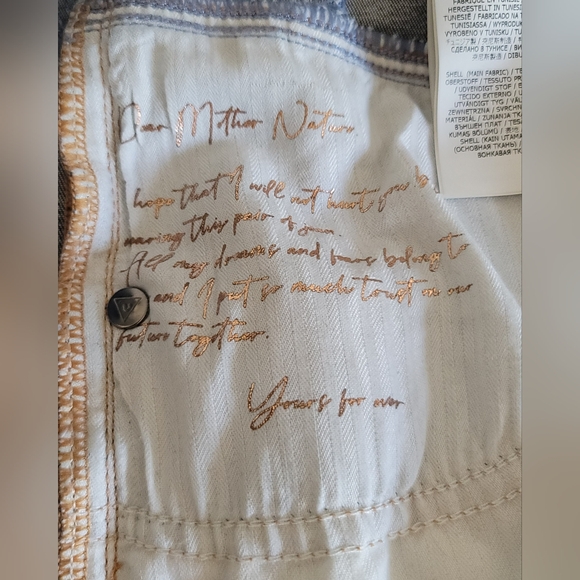 Dear Mother Nature
I hope that I will not hurt you by
wearing this pair of jean.
All my dreams and fears belong to
and I put so much trust in our
future together.
Yours for ever
HERGESTELLT IN TUNESI
TUNESIË / FABRICADO NA T
TUNISIASSA / WYPRODUK
VYROBENO V TUNISKU / TU
СДЕЛАНО В ТУНИСЕ /
SHELL (MAIN FABRIC) / TE
OBERSTOFF / TESSUTO PR
/ UDVENDIGT STOF / E
TECIDO EXTERNO / U
UTVÄNDIGT TYG / VÄL
ZEWNETRZNA / SVRCHN
MATERIÁL / ZUNANJA TK
ВЪНШЕН ПЛАТ / TES
KUMAS BÖLÜMÜ /
SHELL (KAIN UTAMA
(ОСНОВНАЯ ТКАНЬ) /